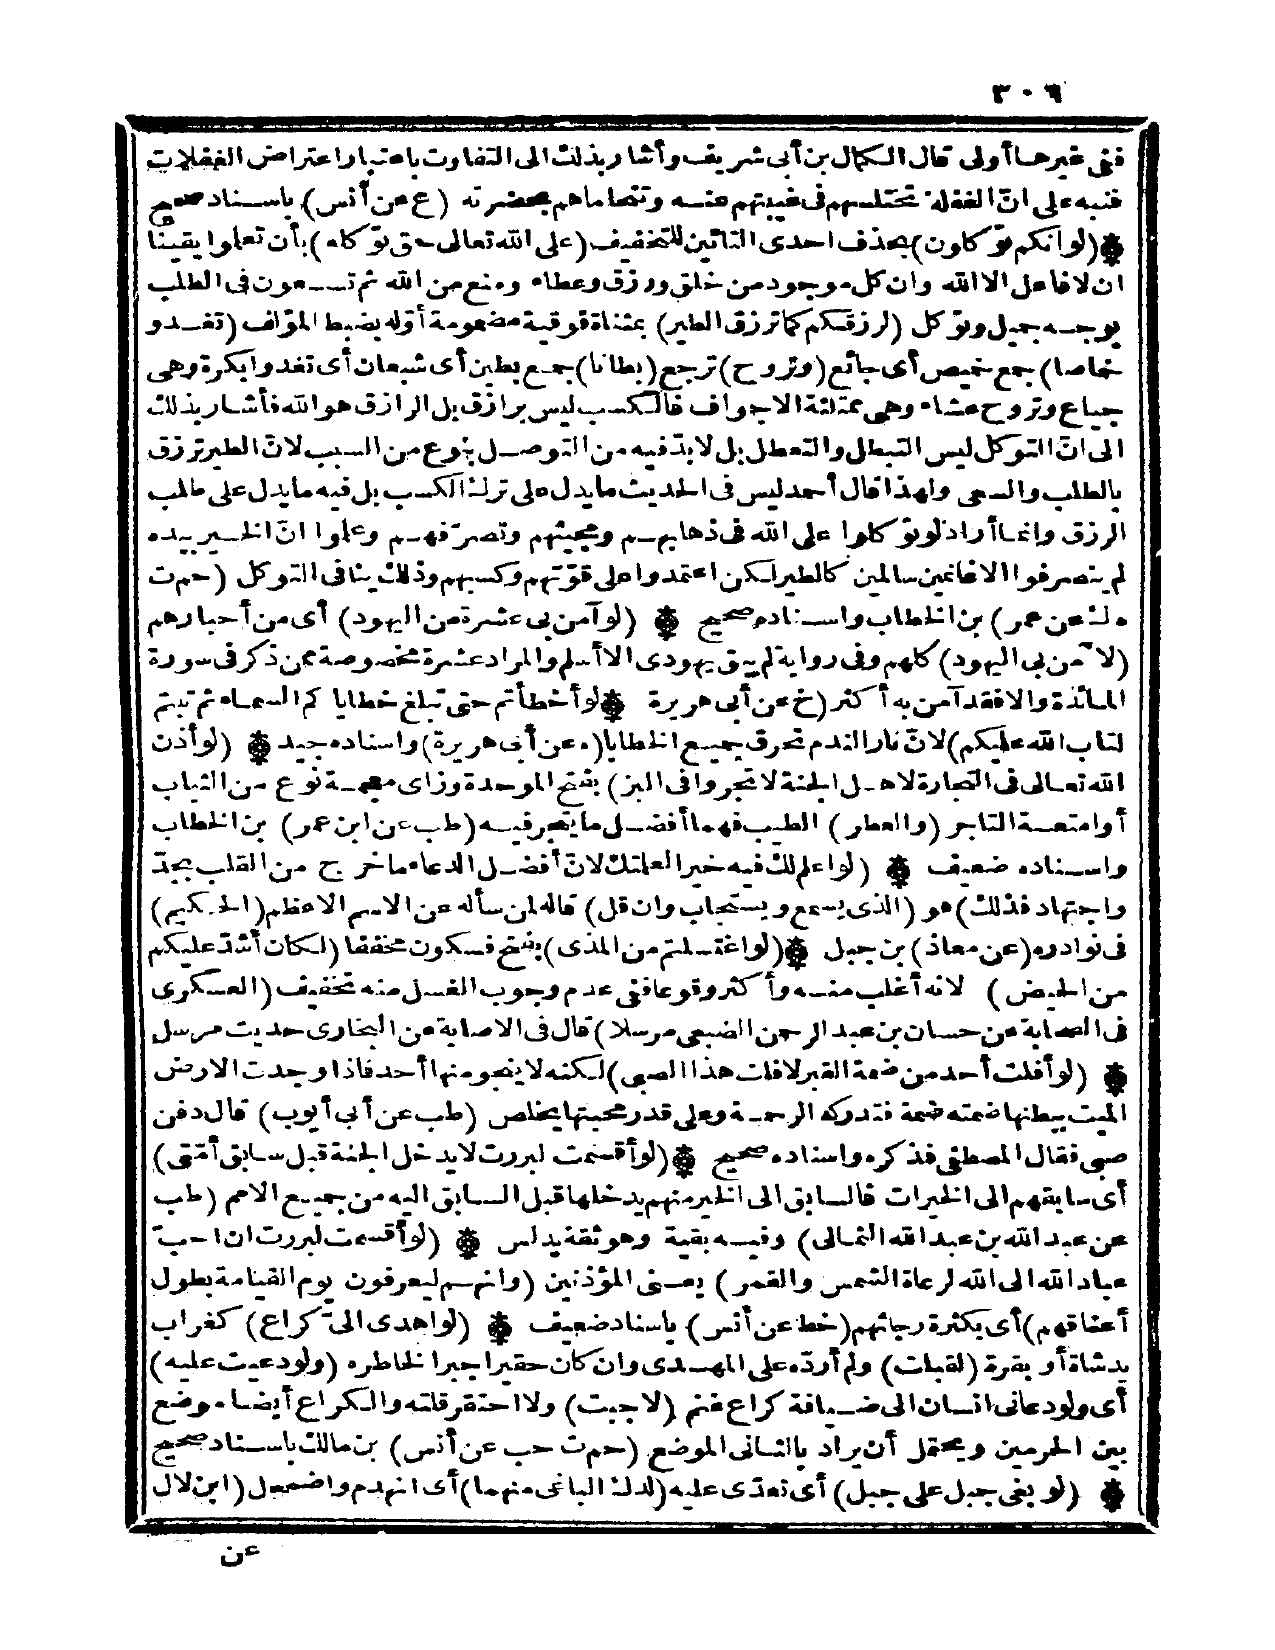 ٣٠٦
ففى غيرها أولى قال الكمال بن أبى شريف وأشار بذلك الى التفاوت باعتبار اعتراض الغفلات
فنبه على انّ الغفلة تختلسهم فى غيبتهم عنه وتتحاماهم بحضرته (ع عن أنس) باسناد صحيح
﴿(لو انكم توكلون) بحذف احدى التائين للتخفيف (على الله تعالى حق توكله) بأن تعلموا يقينا
ان لا فاعل الا الله وان كل موجود من خلق ورزق وعطاء ومنع من الله ثم تسعون فى الطلب
بوجه جميل وتوكل (لرزقكم كما ترزق الطير) بمثناة فوقية مضمومة أوّله بضبط المؤلف (تغدو
خماصا) جمع خميص أى جائع (وتروح) ترجع (بطانا) جمع بطين أى شبعان أى تغدو ابكرة وهى
جياع وتروح عشاء وهى ممتلئة الاجواف فالكسب ليس برازق بل الرازق هو الله فأشار بذلك
الى انّ التوكل ليس التبطل والتعطل بل لا بدّ فيه من التوصل بنوع من السبب لانّ الطير ترزق
بالطلب والسعى ولهذا قال أحمد ليس فى الحديث ما يدل على ترك الكسب بل فيه ما يدل على طلب
الرزق وانما أراد لو توكلوا على الله فى ذهابهم ومجيئهم وتصرّفهم وعلموا انّ الخير بيده
لم ينصرفوا الا غانمين سالمين كالطير لكن اعتمدوا على قوّتهم وكسبهم وذلك ينافى التوكل (حم ت
ه ك عن عمر) بن الخطاب واسناده صحيح ﴿ (لو آمن بى عشرة من اليهود) أى من أحبارهم
(لآمن بى اليهود) كلهم وفى رواية لم يبق يهودى الا أسلم والمراد عشرة مخصوصة ممن ذكر فى سورة
المائدة والا فقد آمن به أكثر (خ عن أبى هريرة ﴿ لو أخطأتم حتى تبلغ خطايا كم السماء ثم تبتم
لتاب الله عليكم) لانّ نار الندم تحرق جميع الخطايا (ه عن أبى هريرة) واسناده جيد ﴿ (لو أذن
الله تعالى فى التجارة لاهل الجنة لا تجروا فى البز) بفتح الموحدة وزاى معجمة نوع من الثياب
أو امتعة التاجر (والعطر) الطيب فهما أفضل ما يتجر فيه (طب عن ابن عمر) بن الخطاب
واسناده ضعيف ﴿ (لو اعلم لك فيه خيرا لعلمتك لانّ أفضل الدعاء ما خرج من القلب بجدّ
واجتهاد فذلك) هو (الذى يسمع ويستجاب وان قل) قاله لمن سأله عن الاسم الاعظم (الحكيم)
فى نوادره (عن معاذ) بن جبل ﴿ (لو اغتسلتم من المذى) بفتح فسكون مخففا (لكان أشدّ عليكم
من الحيض) لانه أغلب منه وأكثر وقوعا ففى عدم وجوب الغسل منه تخفيف (العسكرى
فى الصحابة عن حسان بن عبد الرحمن الضبعى مرسلا) قال فى الاصابة عن البخارى حديث مرسل
﴿ (لو أفلت أحد من ضمة القبر لافلت هذا الصبى) لكنه لا ينجو منها أحد فاذا وجدت الارض
الميت ببطنها ضمته ضمة فتدركه الرحمة وعلى قدر مجيئها يخلص (طب عن أبى أيوب) قال دفن
صبى فقال المصطفى فذكره واسناده صحيح ﴿ (لو أقسمت لبررت لا يدخل الجنة قبل سابق أمّتى)
أى سابقهم الى الخيرات فالسابق الى الخير منهم يدخلها قبل السابق اليه من جميع الامم (طب
عن عبد الله بن عبد الله الثمالى) وفيه بقية وهو ثقة يدلس ﴿ (لو أقسمت لبررت ان احبّ
عباد الله الى الله لرعاة الشمس والقمر) يعنى المؤذنين (وانهم ليعرفون يوم القيامة بطول
أعناقهم) أى بكثرة رجائهم (خط عن أنس) باسناد ضعيف ﴿ (لو اهدى الىّ كراع) كغراب
يد شاة أو بقرة (لقبلت) ولم أردّه على المهدى وان كان حقيرا جبرا لخاطره (ولو دعيت عليه)
أى ولو دعانى انسان الى ضيافة كراع غنم (لاجبت) ولا احتقر قلته والكراع أيضا موضع
بين الحرمين ويحتمل أن يراد بالثانى الموضع (حم ت حب عن أنس) بن مالك باسناد صحيح
﴿ (لو بغى جبل على جبل) أى تعدّى عليه (لدك الباغى منهما) أى انهدم واضمحل (ابن لال
عن